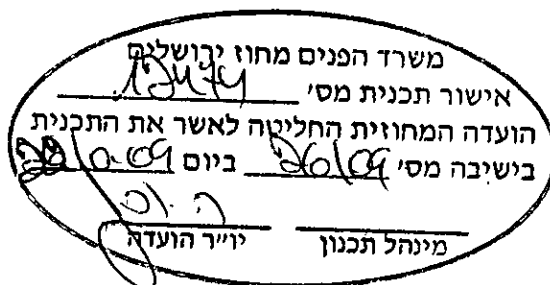 משרד הפנים מחוז ירושלים
אישור תכנית מס' 12474
הועדה המחוזית החליטה לאשר את התכנית
בישיבה מס' 26/09 ביום
מינהל תכנון יו״ר הועדה